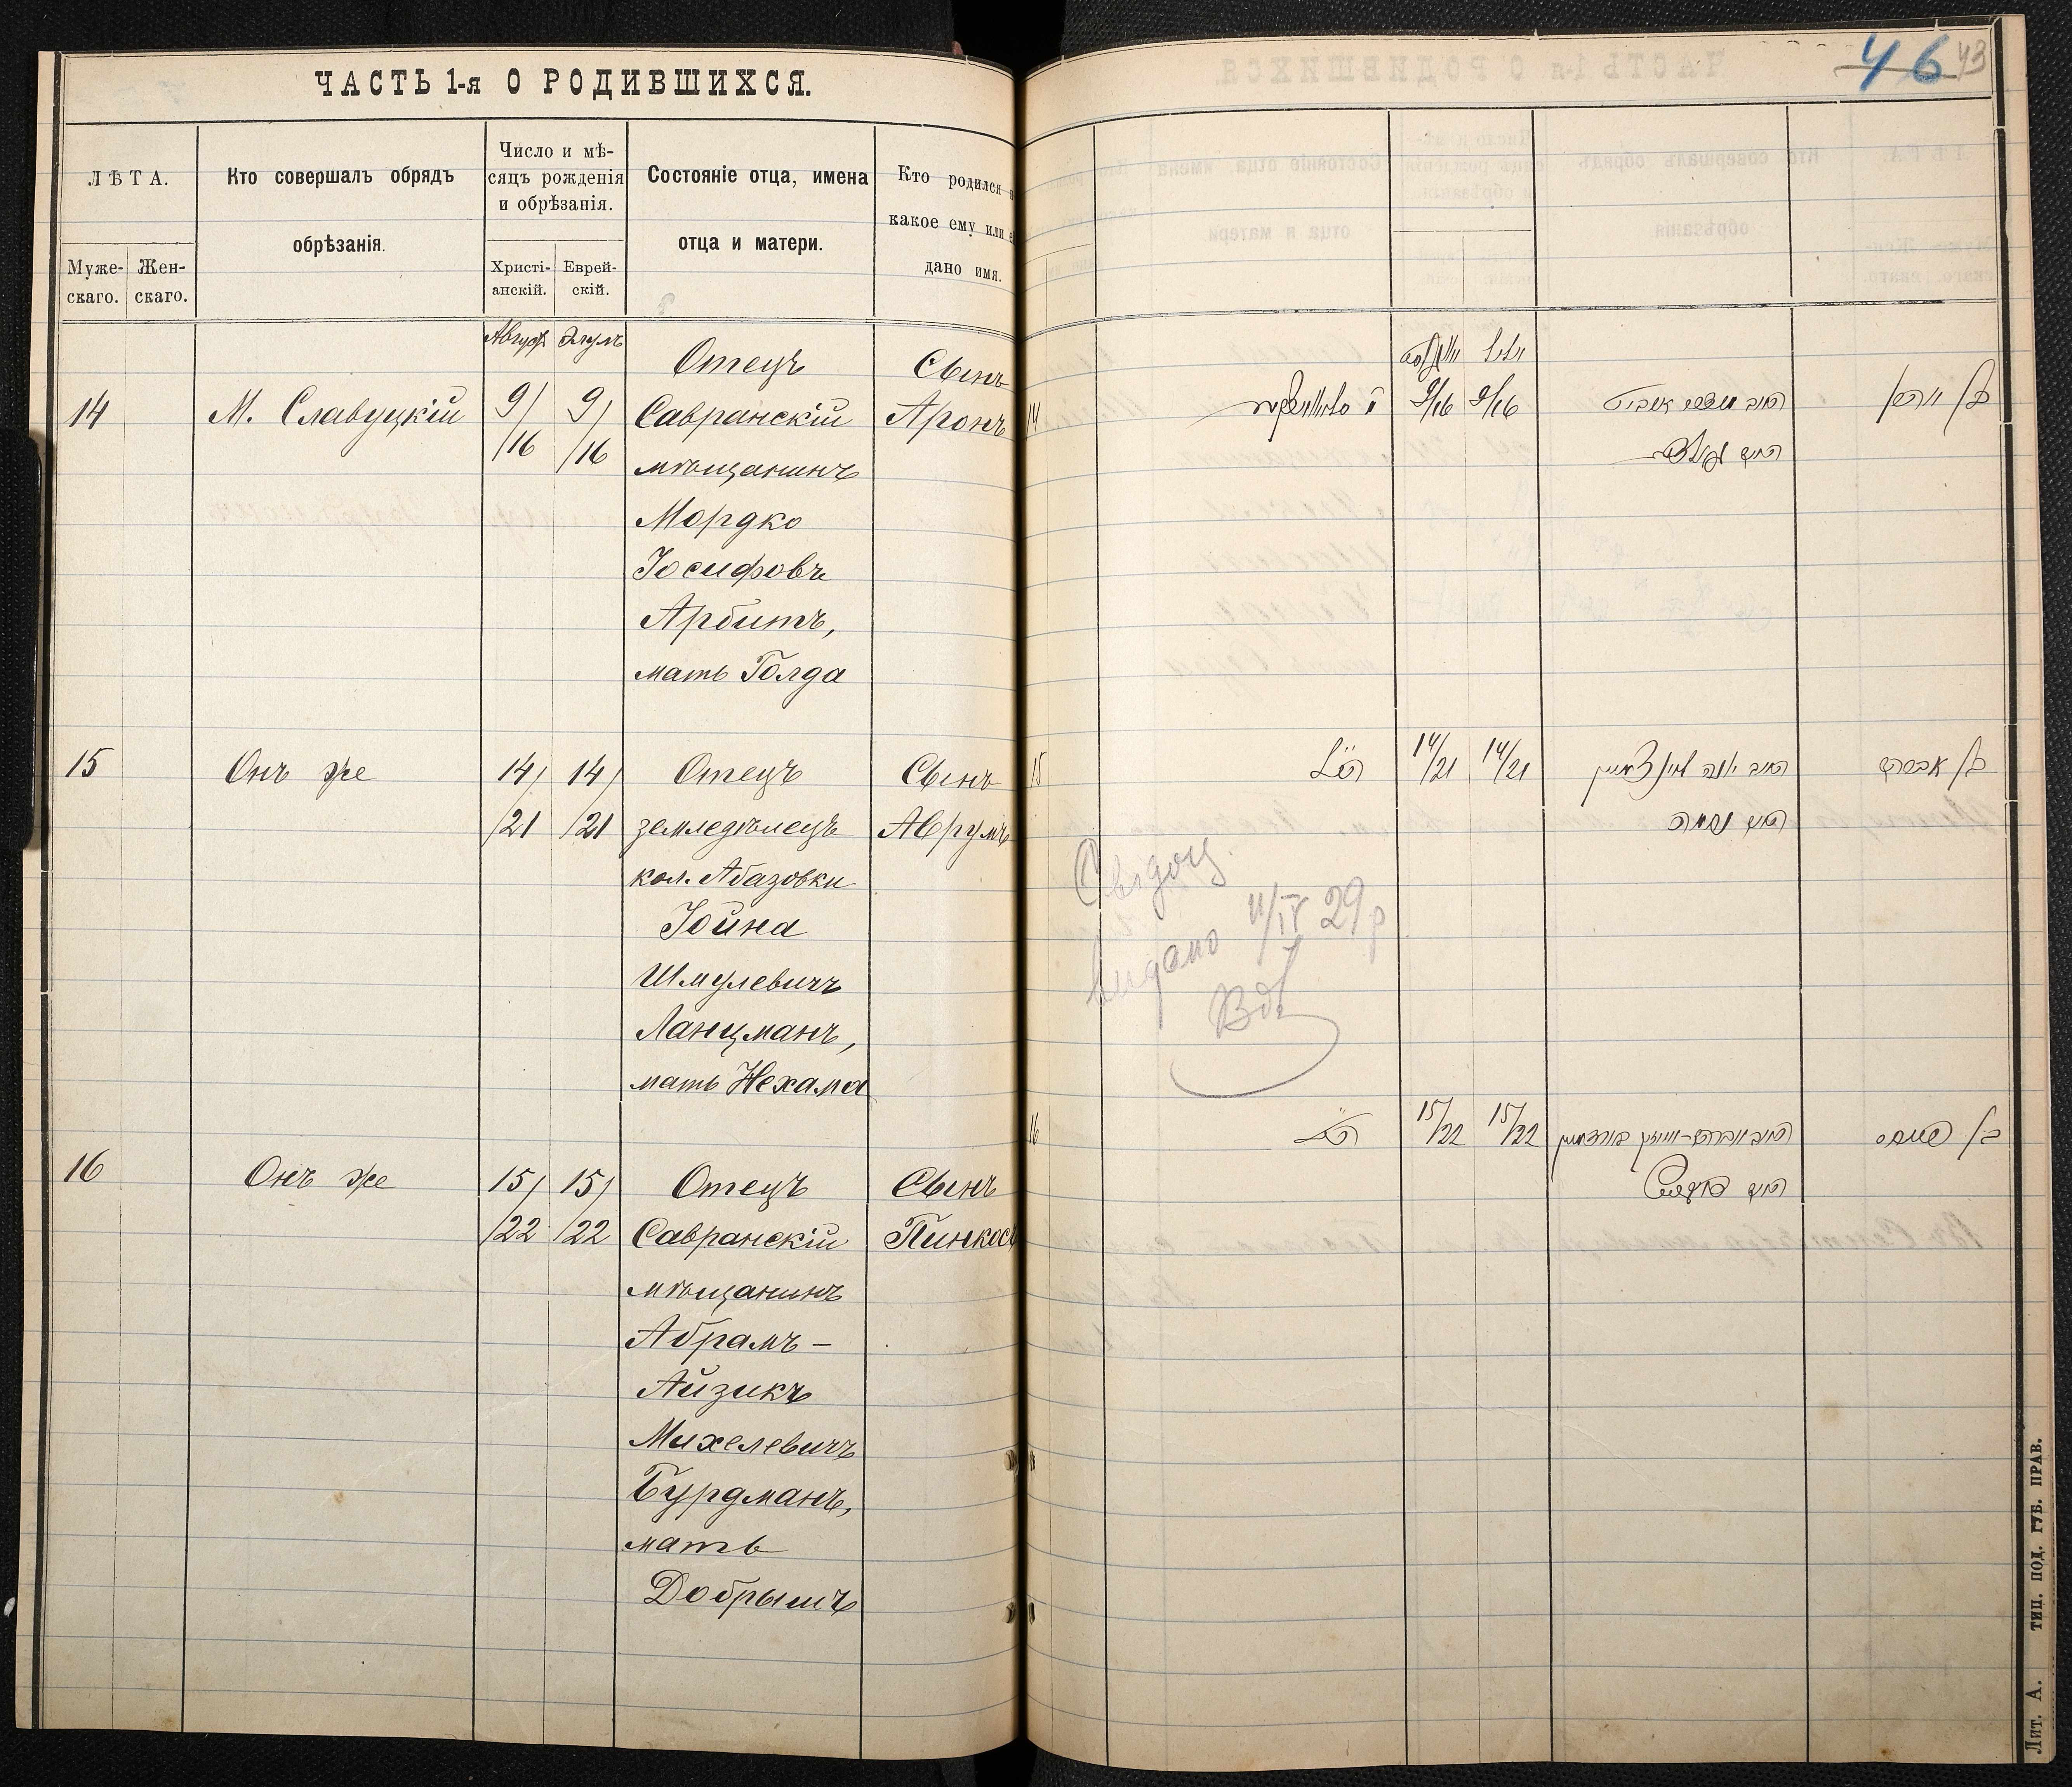 ЧАСТЬ 1-я О РОДИВШИХСЯ.
46 43
ЛѢТА.
Муже-
скаго.
Жен-
скаго.
Кто совершалъ обрядъ
обрѣзанія.
Число и мѣ-
сяцъ рожденія
и обрѣзанія.
Христі-
анскій.
Еврей-
скій.
Состояніе отца, имена
отца и матери.
Кто родился
какое ему или
дано имя.
14
М. Славуцкій
Август
9/
/16
9/
/16
Отецъ
Савранскій
мѣщанинъ
Мордко
Іосифовъ
Арбитъ,
мать Голда
Сынъ
Аронъ
15
Онъ же
14/
/21
14/
/21
Отецъ
земледѣлецъ
кол. Абазовки
Іойна
Шмулевичъ
Ланцманъ,
мать Нехама
Сынъ
Аврумъ
16
Онъ же
15/
/22
15/
/22
Отецъ
Савранскій
мѣщанинъ
Абрамъ-
Айзикъ
Михелевичъ
Бурдманъ,
мать
Добрышъ
Сынъ
Пинкосъ
14
9/16 9/16
15
14/21 14/21
בן אברהם
האם נחמה
видано 11/IV 29р
16
15/22 15/22
Лит. А. ТИП. ПОД. ГУБ. ПРАВ.